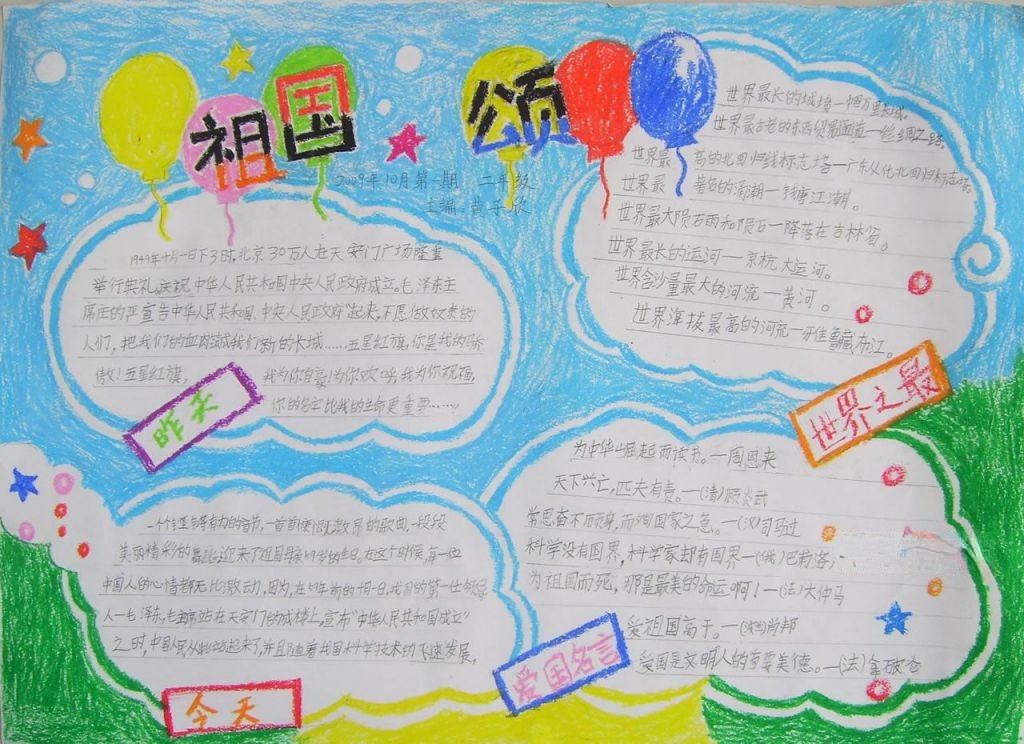 祖国颂
2009年10月第一期 二年级
主编：黄子欣
1949年十月一日下3时,北京30万人在天安门广场隆重
举行典礼,庆祝中华人民共和国中央人民政府成立。毛泽东主
席庄的严宣告中华人民共和国、中央人民政府起来,不愿做奴隶的
人们，把我们的血肉筑成我们新的长城……五星红旗,你是我的骄
傲！五星红旗， 我为你自豪！为你欢呼,我为你祝福,
你的名字比我的生命更重要……
昨天
世界最长的城墙—
世界最古老的东西贸易通道—丝绸之路。
世界最高的北回归线标志塔—广东从化北回归标志塔。
世界最 的潮—钱塘江潮。
世界最大陨石雨和陨石—降落在吉林省。
世界最长的运河—京杭大运河。
世界含沙量最大的河流—黄河。
世界海拔最高的河流—雅鲁藏布江。
世界之最
一个个 有力的音节,一首首 的歌曲,一段段
美丽精彩的舞蹈,迎来了祖国 岁的生日。在这个时候,每一位
中国人的心情都无比激动,因为,在 年前的十月一日,我们的第一位领导
人—毛泽东,毛主席站在天安门的城楼上,宣布“中华人民共和国成立”
之时,中国人民从此站起来了,并且随着我国科学技术的飞速发展,
今天
为中华崛起而读书。—周恩来
天下兴亡,匹夫有责。—(清)顾炎武
常思奋不顾身,而殉国家之急。—(汉)司马过
科学没有国界,科学家却有国界—(俄)巴莉洛
为祖国而死，那是最美的命运啊！—(法)大仲马
爱祖国高于。—(波兰)肖邦
爱国是文明人的首要美德。—(法)拿破仑
爱国名言